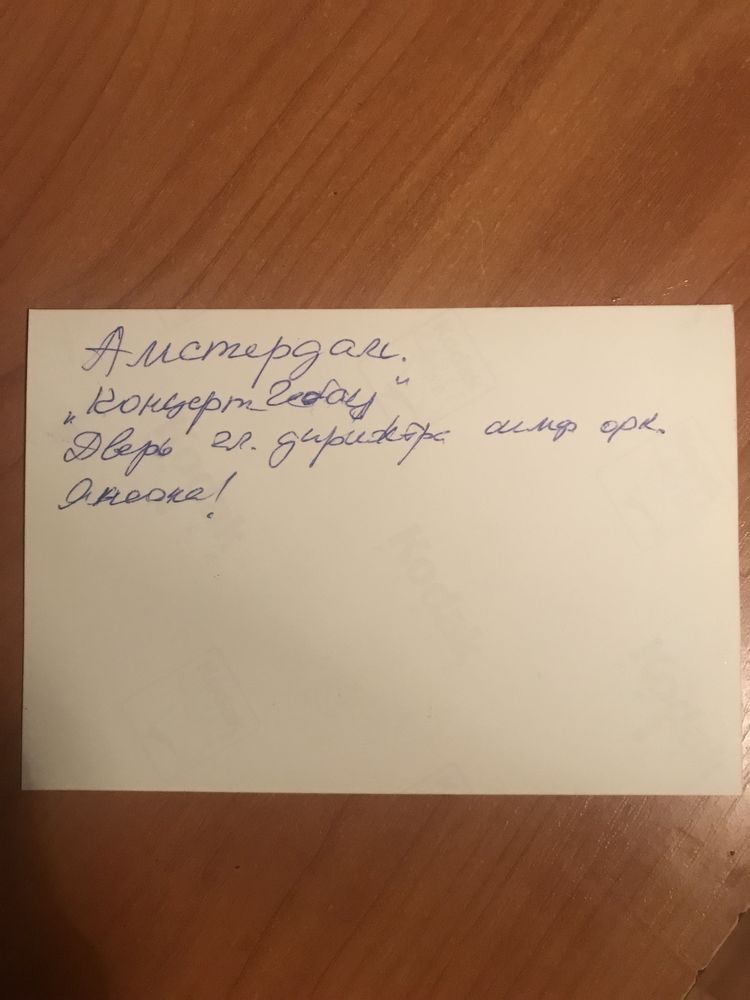 Амстердам.
„Концерт Гебау"
Дверь гл. дирижера симф орк.
Янсонса!
Kodak